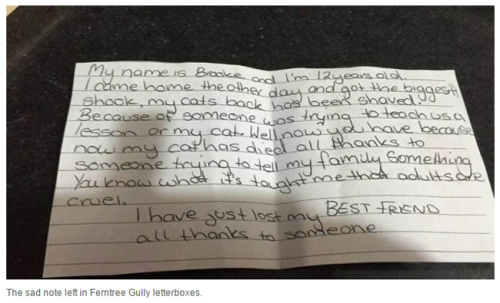 My name is Brooke and I'm 12 years old.
I came home the other day and got the biggest
shook, my cats back has been shaved!
Because of someone was trying to teach us a
lesson or my cat. Well, now you have because
now my cat has died all thanks to
someone trying to tell my family something
You know what it's taught me that adults are
cruel.
I have just lost my BEST FRIEND
all thanks to someone
The sad note left in Ferntree Gully letterboxes.